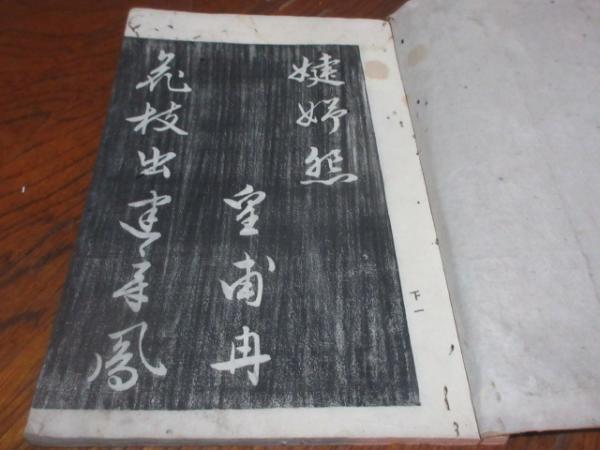 婕妤怨
皇甫冉
花枝出建章鳳
下一